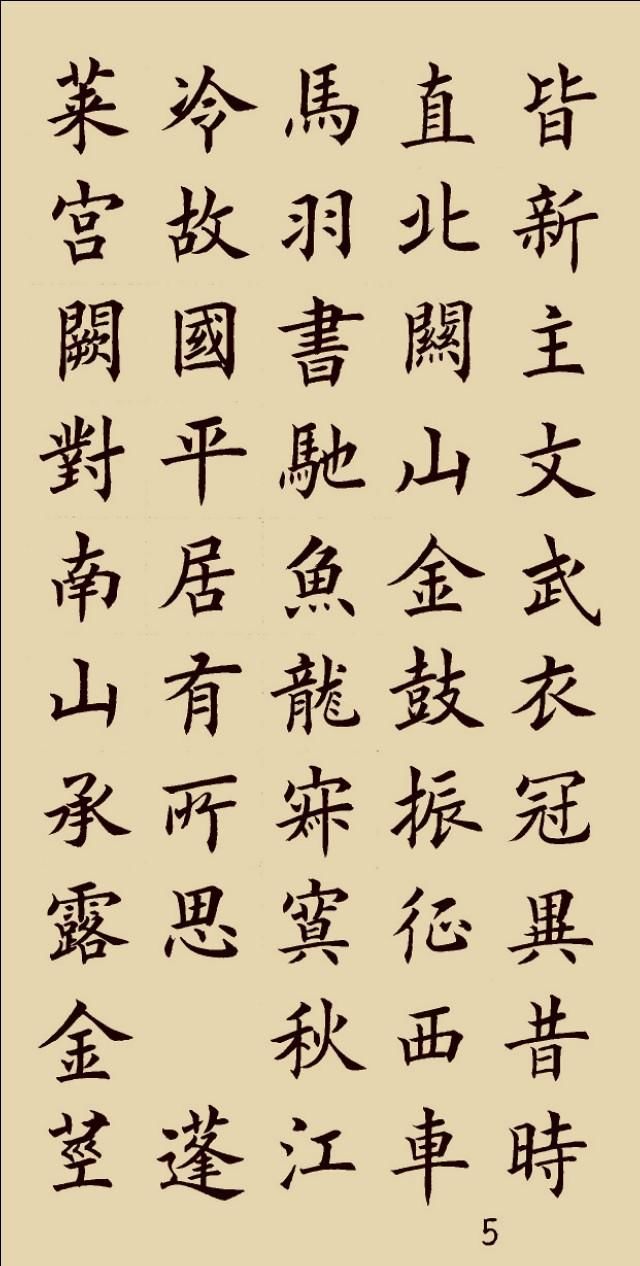 皆新主文武衣冠異昔時
直北關山金鼓振征西車
馬羽書馳魚龍寂寞秋江
冷故國平居有所思 蓬
萊宮闕對南山承露金莖
5